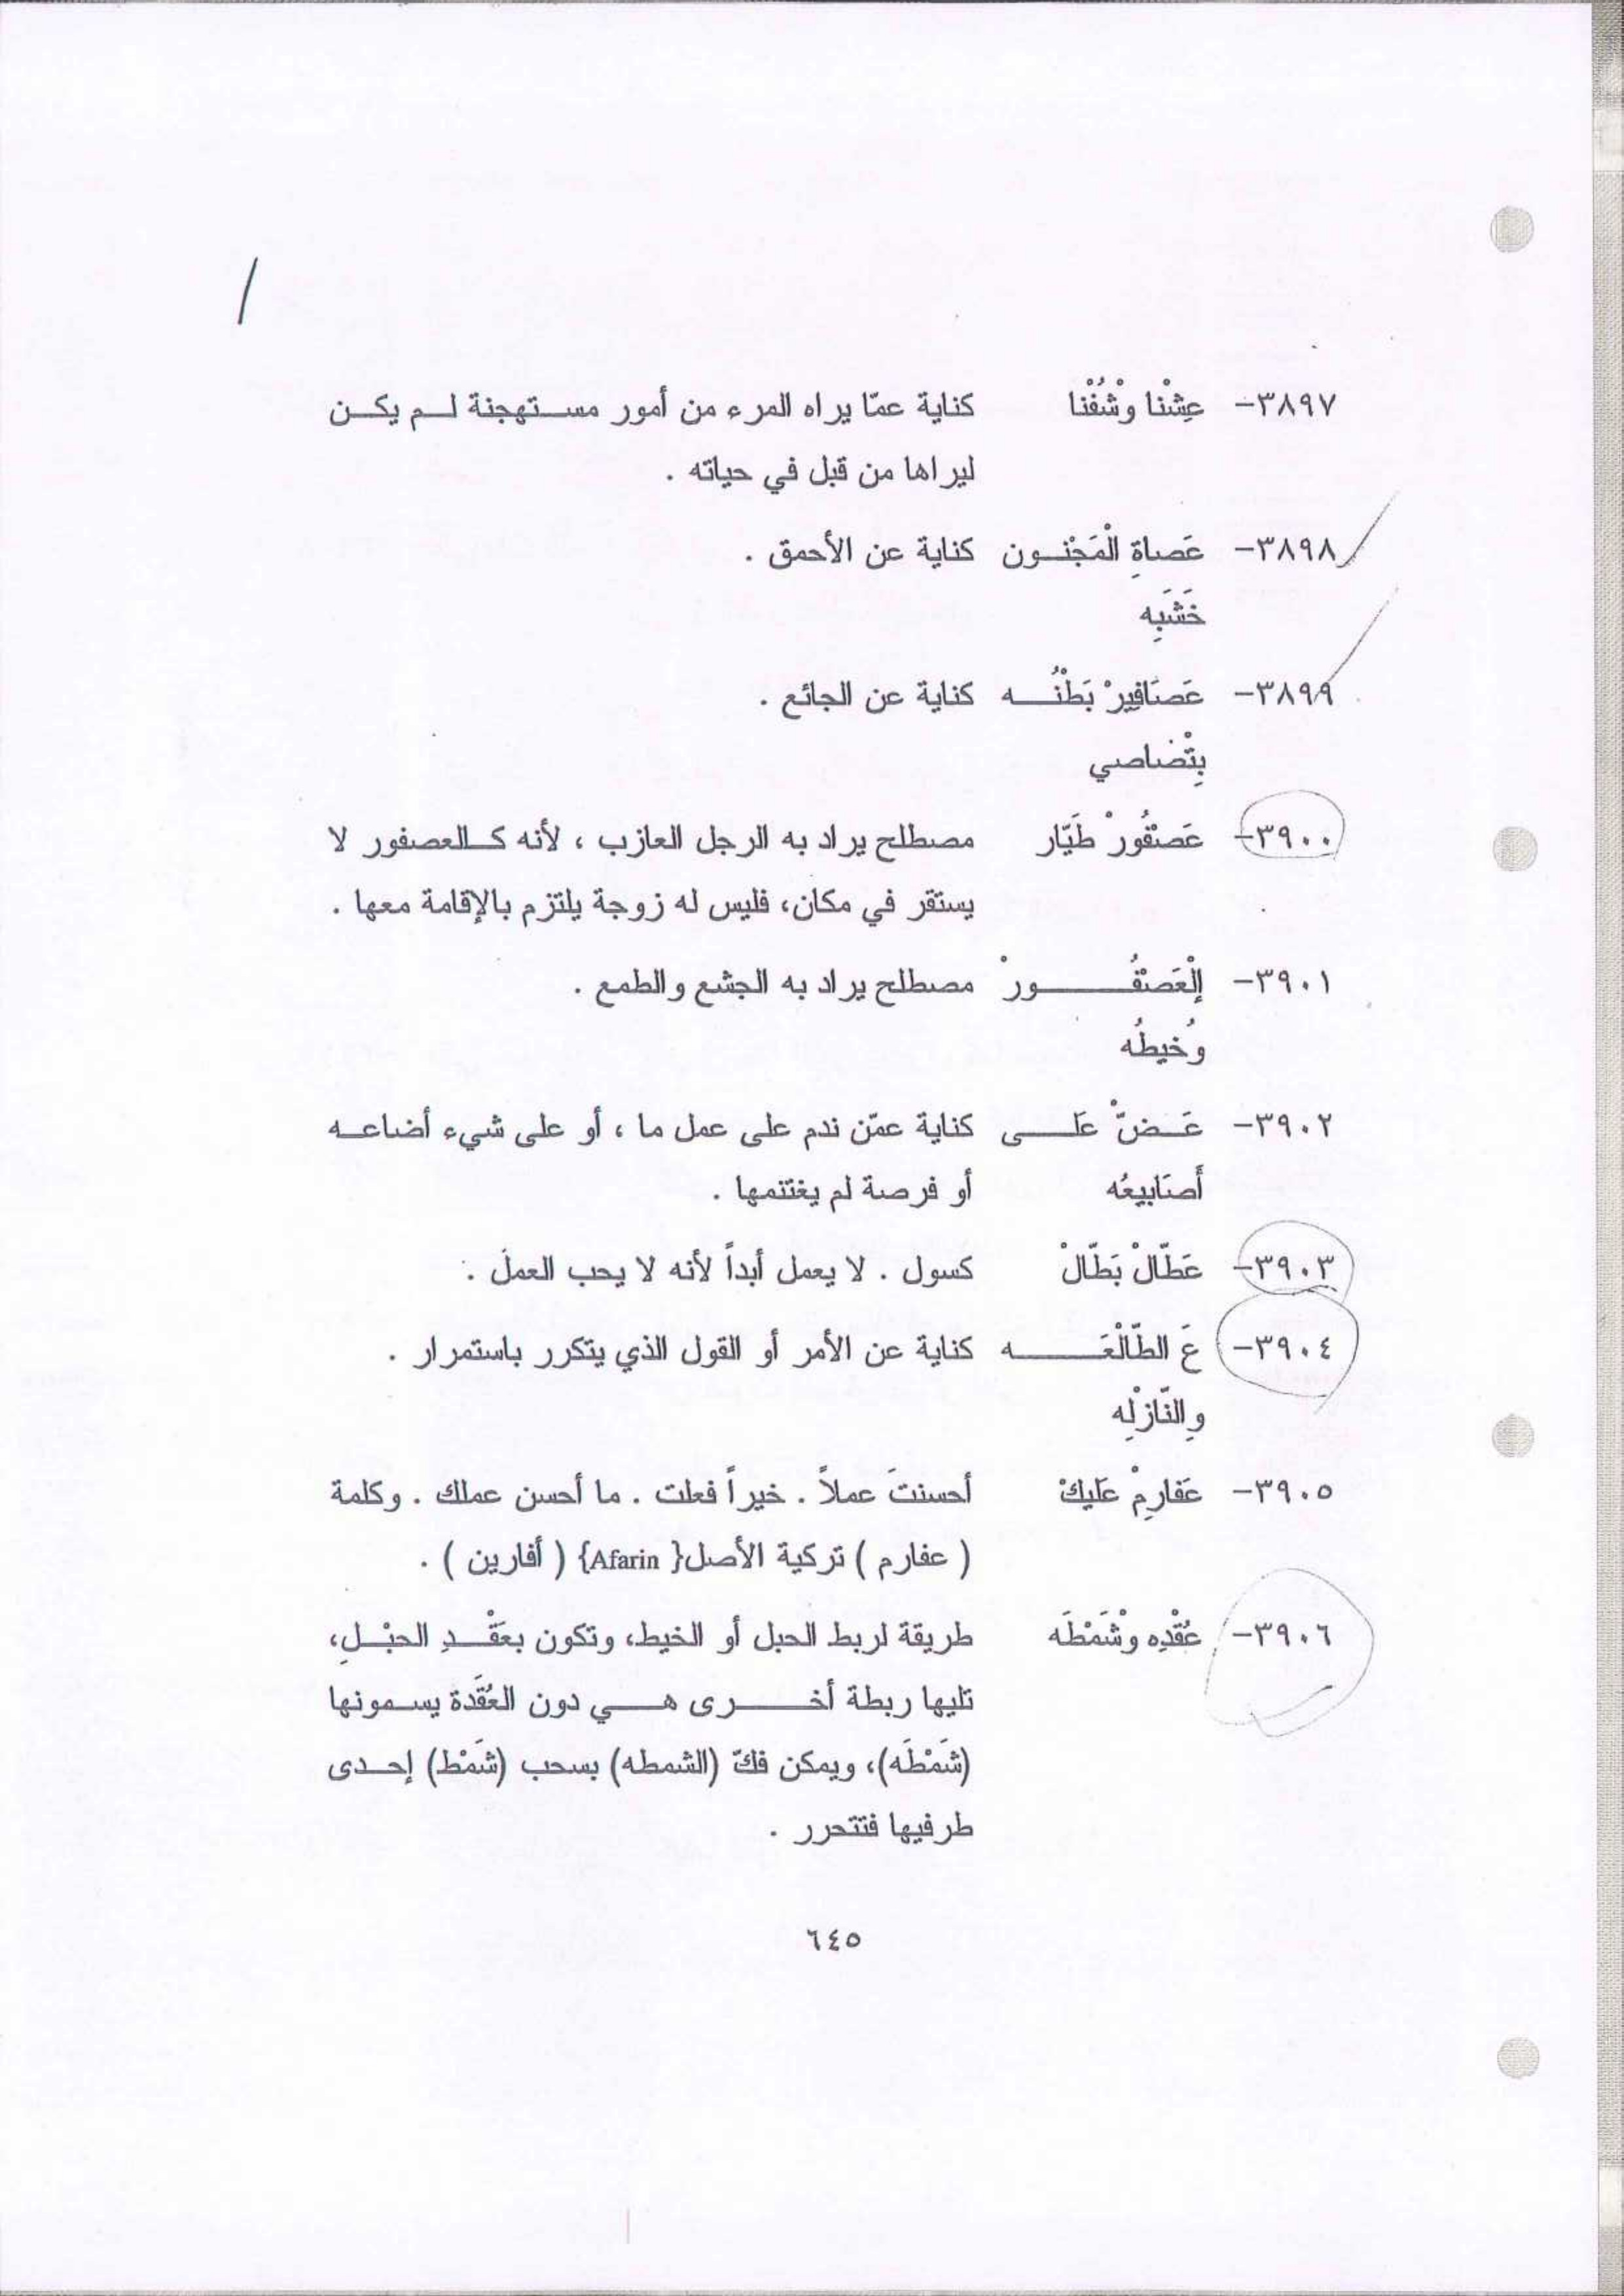 ٣٨٩٧- عِشْنا وْشُفْنا كناية عمّا يراه المرء من أمور مستهجنة لم يكن
ليراها من قبل في حياته .
٣٨٩٨- عَصاةِ الْمَجْنون كناية عن الأحمق .
خَشَبِه
٣٨٩٩- عَصَافِيرْ بَطْنُه كناية عن الجائع .
بِتْصاصي
٣٩٠٠- عَصْفُورْ طَيّار مصطلح يراد به الرجل العازب ، لأنه كالعصفور لا
يستقر في مكان، فليس له زوجة يلتزم بالإقامة معها .
٣٩٠١- إلْعَصْفُورْ مصطلح يراد به الجشع والطمع .
وُخيطُه
٣٩٠٢- عَضّْ عَلى كناية عمّن ندم على عمل ما ، أو على شيء أضاعه
أَصَابيعُه أو فرصة لم يغتنمها .
٣٩٠٣- عَطّالْ بَطّالْ كسول . لا يعمل أبداً لأنه لا يحب العملَ .
٣٩٠٤- عَ الطّالْعَه كناية عن الأمر أو القول الذي يتكرر باستمرار .
وِالنّازْلِه
٣٩٠٥- عَفارِمْ عَليكْ أحسنتَ عملاً . خيراً فعلت . ما أحسن عملك . وكلمة
( عفارم ) تركية الأصل{ Afarin} ( أفارين ) .
٣٩٠٦- عُقْدِه وْشَمْطَه طريقة لربط الحبل أو الخيط، وتكون بعَقْدِ الحبْلِ،
تليها ربطة أخرى هي دون العُقَدة يسمونها
(شَمْطَه)، ويمكن فكّ (الشمطه) بسحب (شَمْط) إحدى
طرفيها فتتحرر .
٦٤٥